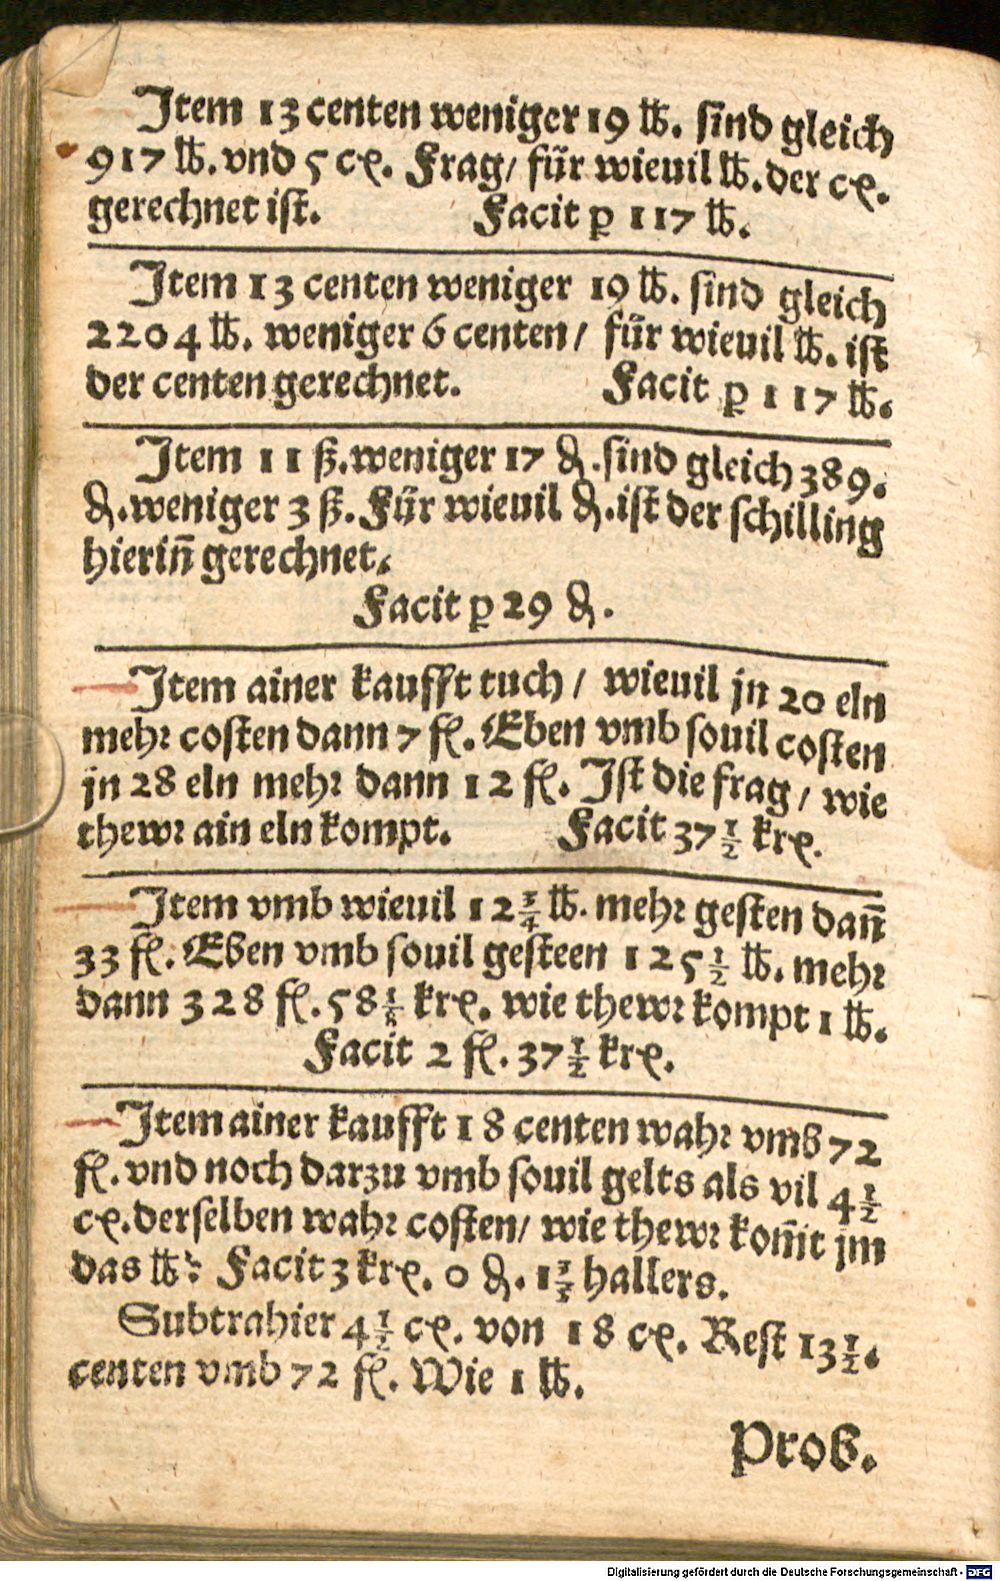 Item 13 centen weniger 19 ℔. sind gleich
917 ℔. vnd 5 cꝫ. Frag/ für wieuil ℔. der cꝫ.
gerechnet ist. Facit ꝑ 117 ℔.
Item 13 centen weniger 19 ℔. sind gleich
2204 ℔. weniger 6 centen/ für wieuil ℔. ist
der centen gerechnet. Facit ꝑ 117 ℔.
Item 11 ß. weniger 17 ₰. sind gleich 389.
₰. weniger 3 ß. Für wieuil ₰. ist der schilling
hierin̄ gerechnet.
Facit ꝑ 29 ₰.
Item ainer kaufft tuch / wieuil jn 20 eln
mehr costen dann 7 fl. Eben vmb souil costen
jn 28 eln mehr dann 12 fl. Ist die frag/ wie
thewr ain eln kompt. Facit 37 1/2 krꝫ.
Item vmb wieuil 12 3/4 ℔. mehr gesten dan̄
33 fl. Eben vmb souil gesteen 125 1/2 ℔. mehr
dann 328 fl. 58 krꝫ. wie thewr kompt 1 ℔.
Facit 2 fl. 37 1/2 krꝫ.
Item ainer kaufft 18 centen wahr vmb 72
fl. vnd noch darzu vmb souil gelts als vil 4 1/2
cꝫ. derselben wahr costen/ wie thewr kom̄t jm
das ℔: Facit 3 krꝫ. 0 ₰. 1 hallers.
Subtrahier 4 1/2 cꝫ. von 18 cꝫ. Rest 13 1/2.
centen vmb 72 fl. Wie 1 ℔.
Prob.
Digitalisierung gefördert durch die Deutsche Forschungsgemeinschaft - DFG